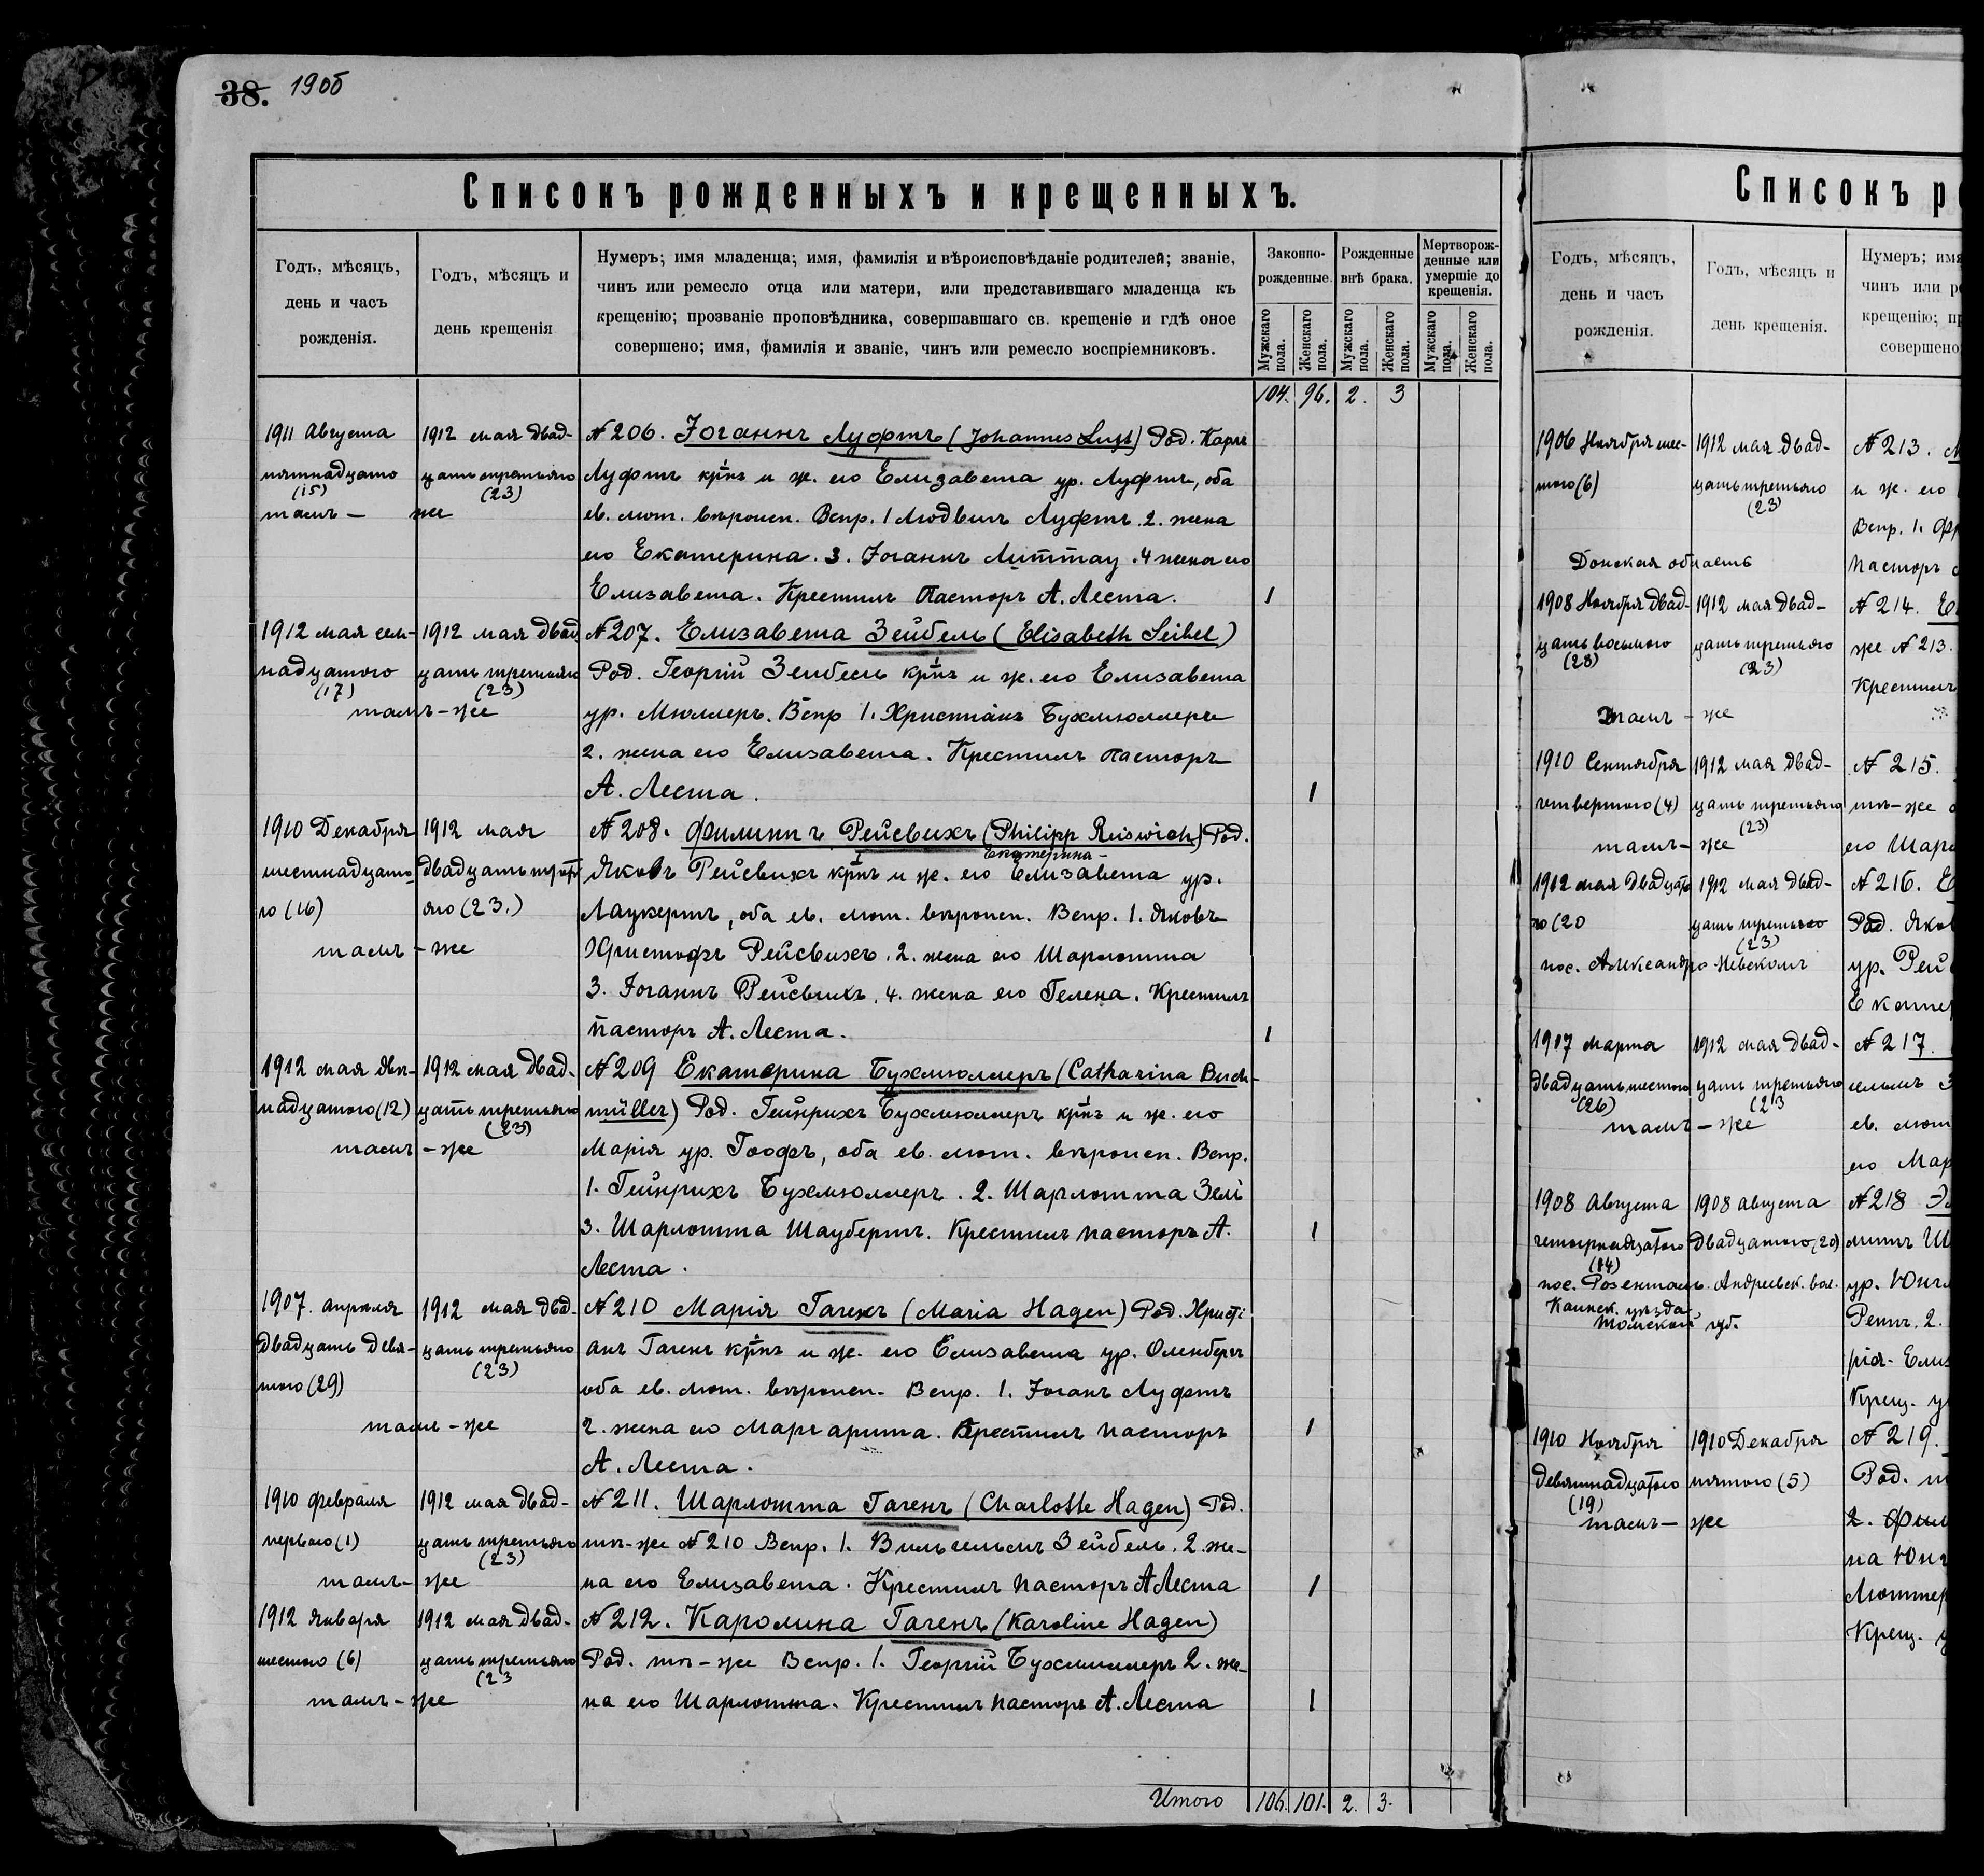 38. 1906
Списокъ рожденныхъ и крещенныхъ.
Годъ, мѣсяцъ,
день и часъ
рожденія.
Годъ, мѣсяцъ и
день крещенія
Нумеръ; имя младенца; имя, фамилія и вѣроисповѣданіе родителей; званіе,
чинъ или ремесло отца или матери, или представившаго младенца къ
крещенію; прозваніе проповѣдника, совершавшаго св. крещеніе и гдѣ оное
совершено; имя, фамилія и званіе, чинъ или ремесло воспріемниковъ.
Законно-
рожденные.
Рожденные
внѣ брака.
Мертворож-
денные или
умершіе до
крещенія.
Мужскаго пола.
Женскаго пола.
Мужскаго пола.
Женскаго пола.
Мужскаго пола.
Женскаго пола.
104. 96. 2. 3
1911 Августа
пятнадцато
(15)
тамъ — же
1912 мая двад-
цать третьяго
(23)
№ 206. Іоганнъ Луфтъ (Johannes Luft) Род. Карлъ
Луфтъ крнъ и ж. его Елизавета ур. Луфтъ, оба
ев. лют. вѣроисп. Вспр. 1 Людвигъ Луфтъ. 2. жена
его Екатерина. 3. Іоганнъ Литтау. 4 жена его
Елизавета. Крестилъ Пасторъ А. Леста. 1
1912 мая сем-
надцатого
(17)
тамъ-же
1912 мая двад
цать третьяго
(23)
№ 207. Елизавета Зейбель (Elisabeth Seibel)
Род. Георгій Зейбель крнъ и ж. его Елизавета
ур. Мюллеръ. Вспр 1. Христіанъ Бухмюллеръ
2. жена его Елизавета. Крестилъ пасторъ
А. Леста. 1
1910 Декабря
шестнадцато-
го (16)
тамъ-же
1912 мая
двадцать треть
яго (23.)
№ 208. Филиппъ Рейсвихъ (Philipp Reiswich) Род.
Екатерина-
Яковъ Рейсвихъ крнъ и ж. его Елизавета ур.
Лаукертъ, оба ев. лют. вѣроисп. Вспр. 1. Яковъ
Христофъ Рейсвихъ. 2. жена его Шарлотта
3. Іоганнъ Рейсвихъ. 4. жена его Гелена. Крестилъ
пасторъ А. Леста. 1
1912 мая двѣ-
надцатого (12)
тамъ-же
1912 мая двад-
цать третьяго
(23)
№ 209 Екатерина Бухмюллеръ (Catharina Buch-
müller) Род. Гейнрихъ Бухмюллеръ крнъ и ж. его
Марія ур. Гоофъ, оба ев. лют. вѣроисп. Вспр.
1. Гейнрихъ Бухмюллеръ. 2. Шарлотта Зей
3. Шарлотта Шаубертъ. Крестилъ пасторъ А.
Леста. 1
1907. апрѣля
двадцать девя-
того (29)
тамъ-же
1912 мая двад-
цать третьяго
(23)
№ 210 Марія Гагенъ (Maria Hagen) Род. Христі
анъ Гагенъ крнъ и ж. его Елизавета ур. Оленберъ
оба ев. лют. вѣроисп. Вспр. 1. Іоганъ Луфтъ
2. жена его Маргарита. Крестилъ пасторъ
А. Леста. 1
1910 февраля
перваго (1)
тамъ-же
1912 мая двад-
цать третьяго
(23)
№ 211. Шарлотта Гагенъ (Charlotte Hagen) Род.
тѣ-же № 210 Вспр. 1. Вильгельмъ Зейбель. 2. же-
на его Елизавета. Крестилъ пасторъ А Леста 1
1912 января
шестого (6)
тамъ-же
1912 мая двад-
цать третьяго
(23
№ 212. Каролина Гагенъ (Karoline Hagen)
Род. тѣ-же Вспр. 1. Георгій Бухмиллеръ 2. же-
на его Шарлотта. Крестилъ пасторъ А. Леста 1
Итого 106. 101. 2. 3.
Списокъ р
Годъ, мѣсяцъ,
день и часъ
рожденія.
Годъ, мѣсяцъ и
день крещенія.
Нумеръ; имя
чинъ или р
крещенію; пр
совершено
1906 Ноября шес-
того (6)
Донская область
1912 мая двад-
цать третьяго
(23)
№ 213.
и ж. его
Вспр. 1. Фр
пасторъ
1908 Ноября двад-
цать восьмого
(28)
тамъ-же
1912 мая двад-
цать третьяго
(23)
№ 214. Е
же № 213.
Крестилъ
1910 Сентября
четвертого (4)
тамъ-же
1912 мая двад-
цать третьяго
(23)
№ 215.
тѣ-же
его Шар
1912 мая двадцата
го (20
пос. Александро-Невскомъ
1912 мая двад-
цать третьяго
(23)
№ 216. Е
Род. Яков
ур. Рей
Екатер
1907 марта
двадцать шестого
(26)
тамъ-же
1912 мая двад-
цать третьяго
(23
№ 217.
гельмъ З
ев. лют
его Мар
1908 Августа
четырнадцатого
(14)
пос. Розенталь. Андреевск. вол.
Каинск. уѣзда,
Томской губ.
1908 августа
двадцатого (20)
№ 218 Э
липъ Ш
ур. Юнг
Ретъ, 2.
рія-Елиз
Крещ. у
1910 Ноября
девятнадцатого
(19)
тамъ-же
1910 Декабря
пятого (5)
№ 219.
Род. т
2. Фил
на Юнг
Люттер
Крещ. у